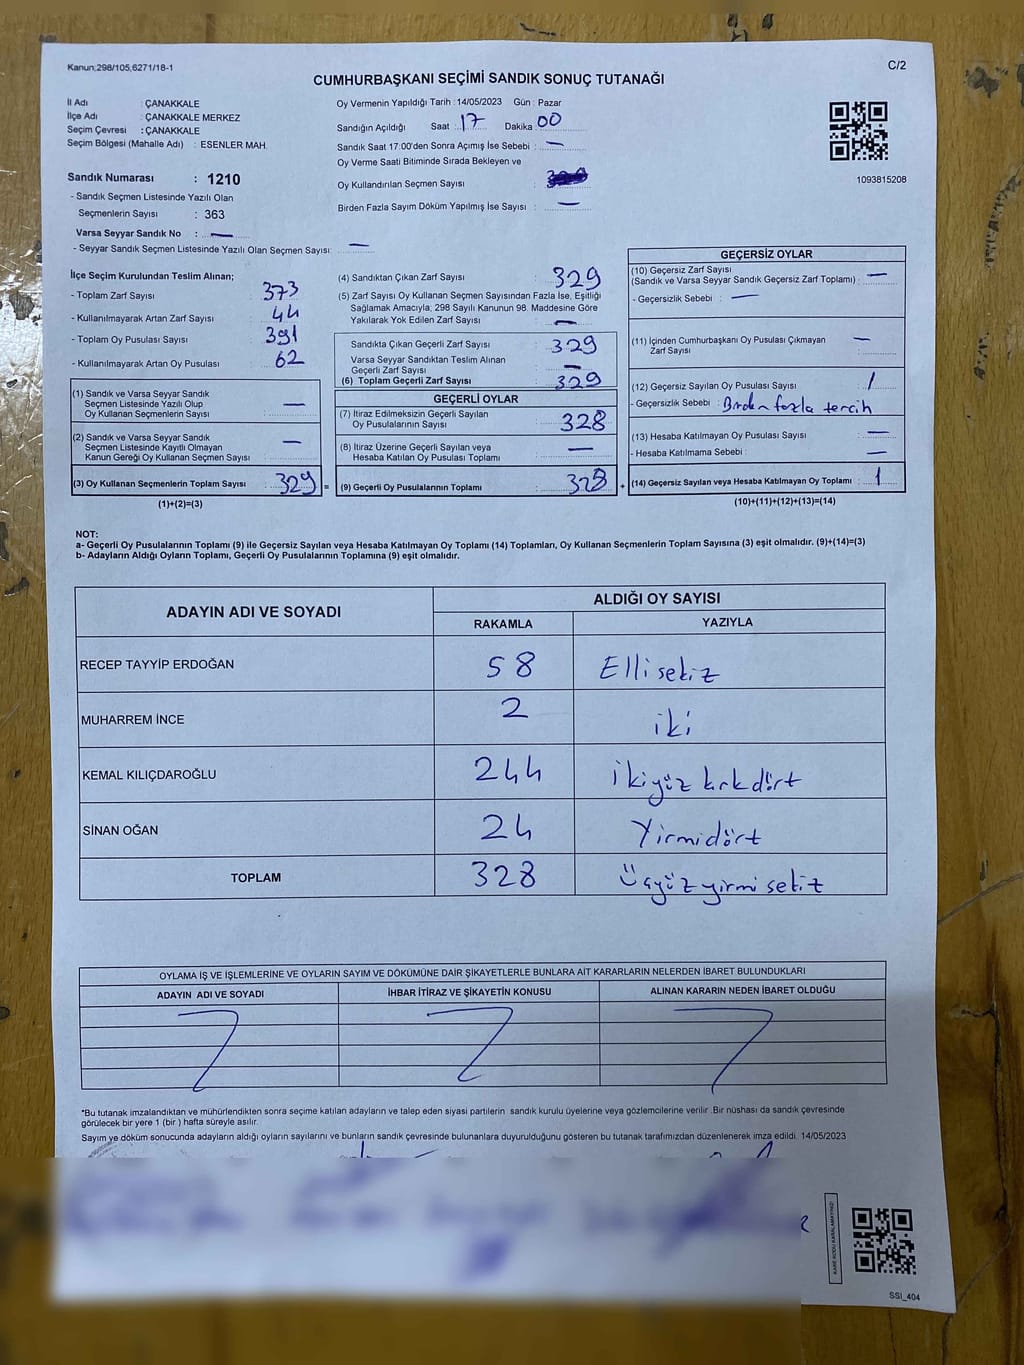 Kanun;298/105,6271/18-1
C/2
CUMHURBAŞKANI SEÇİMİ SANDIK SONUÇ TUTANAĞI
İl Adı : ÇANAKKALE
İlçe Adı : ÇANAKKALE MERKEZ
Seçim Çevresi : ÇANAKKALE
Seçim Bölgesi (Mahalle Adı) : ESENLER MAH.
Sandık Numarası : 1210
- Sandık Seçmen Listesinde Yazılı Olan
Seçmenlerin Sayısı : 363
Varsa Seyyar Sandık No : —
- Seyyar Sandık Seçmen Listesinde Yazılı Olan Seçmen Sayısı: —
Oy Vermenin Yapıldığı Tarih : 14/05/2023 Gün : Pazar
Sandığın Açıldığı Saat : 17 Dakika 00
Sandık Saat 17:00'den Sonra Açımış İse Sebebi : —
Oy Verme Saati Bitiminde Sırada Bekleyen ve
Oy Kullandırılan Seçmen Sayısı :
Birden Fazla Sayım Döküm Yapılmış İse Sayısı : —
1093815208
İlçe Seçim Kurulundan Teslim Alınan;
- Toplam Zarf Sayısı : 373
- Kullanılmayarak Artan Zarf Sayısı : 44
- Toplam Oy Pusulası Sayısı : 391
- Kullanılmayarak Artan Oy Pusulası : 62
(1) Sandık ve Varsa Seyyar Sandık
Seçmen Listesinde Yazılı Olup
Oy Kullanan Seçmenlerin Sayısı : —
(2) Sandık ve Varsa Seyyar Sandık
Seçmen Listesinde Kayıtlı Olmayan
Kanun Gereği Oy Kullanan Seçmen Sayısı : —
(3) Oy Kullanan Seçmenlerin Toplam Sayısı : 329 =
(1)+(2)=(3)
(4) Sandıktan Çıkan Zarf Sayısı : 329
(5) Zarf Sayısı Oy Kullanan Seçmen Sayısından Fazla İse, Eşitliği
Sağlamak Amacıyla; 298 Sayılı Kanunun 98. Maddesine Göre
Yakılarak Yok Edilen Zarf Sayısı : —
Sandıkta Çıkan Geçerli Zarf Sayısı : 329
Varsa Seyyar Sandıktan Teslim Alınan
Geçerli Zarf Sayısı : —
(6) Toplam Geçerli Zarf Sayısı : 329
GEÇERLİ OYLAR
(7) İtiraz Edilmeksizin Geçerli Sayılan
Oy Pusulalarının Sayısı : 328
(8) İtiraz Üzerine Geçerli Sayılan veya
Hesaba Katılan Oy Pusulası Toplamı : —
(9) Geçerli Oy Pusulalarının Toplamı : 328 +
GEÇERSİZ OYLAR
(10) Geçersiz Zarf Sayısı
(Sandık ve Varsa Seyyar Sandık Geçersiz Zarf Toplamı) : —
- Geçersizlik Sebebi : —
(11) İçinden Cumhurbaşkanı Oy Pusulası Çıkmayan
Zarf Sayısı : —
(12) Geçersiz Sayılan Oy Pusulası Sayısı : 1
- Geçersizlik Sebebi : Birden fazla tercih
(13) Hesaba Katılmayan Oy Pusulası Sayısı : —
- Hesaba Katılmama Sebebi : —
(14) Geçersiz Sayılan veya Hesaba Katılmayan Oy Toplamı : 1
(10)+(11)+(12)+(13)=(14)
NOT:
a- Geçerli Oy Pusulalarının Toplamı (9) ile Geçersiz Sayılan veya Hesaba Katılmayan Oy Toplamı (14) Toplamları, Oy Kullanan Seçmenlerin Toplam Sayısına (3) eşit olmalıdır. (9)+(14)=(3)
b- Adayların Aldığı Oyların Toplamı, Geçerli Oy Pusulalarının Toplamına (9) eşit olmalıdır.
ADAYIN ADI VE SOYADI
ALDIĞI OY SAYISI
RAKAMLA YAZIYLA
RECEP TAYYİP ERDOĞAN 58 Elli sekiz
MUHARREM İNCE 2 iki
KEMAL KILIÇDAROĞLU 244 ikiyüz kırkdört
SİNAN OĞAN 24 Yirmidört
TOPLAM 328 Üçyüz yirmi sekiz
OYLAMA İŞ VE İŞLEMLERİNE VE OYLARIN SAYIM VE DÖKÜMÜNE DAİR ŞİKAYETLERLE BUNLARA AİT KARARLARIN NELERDEN İBARET BULUNDUKLARI
ADAYIN ADI VE SOYADI İHBAR İTİRAZ VE ŞİKAYETİN KONUSU ALINAN KARARIN NEDEN İBARET OLDUĞU
*Bu tutanak imzalandıktan ve mühürlendikten sonra seçime katılan adayların ve talep eden siyasi partilerin sandık kurulu üyelerine veya gözlemcilerine verilir .Bir nüshası da sandık çevresinde
görülecek bir yere 1 (bir ) hafta süreyle asılır.
Sayım ve döküm sonucunda adayların aldığı oyların sayılarını ve bunların sandık çevresinde bulunanlara duyurulduğunu gösteren bu tutanak tarafımızdan düzenlenerek imza edildi. 14/05/2023
KARE KODU KARALAMAYINIZ!
SSI_404